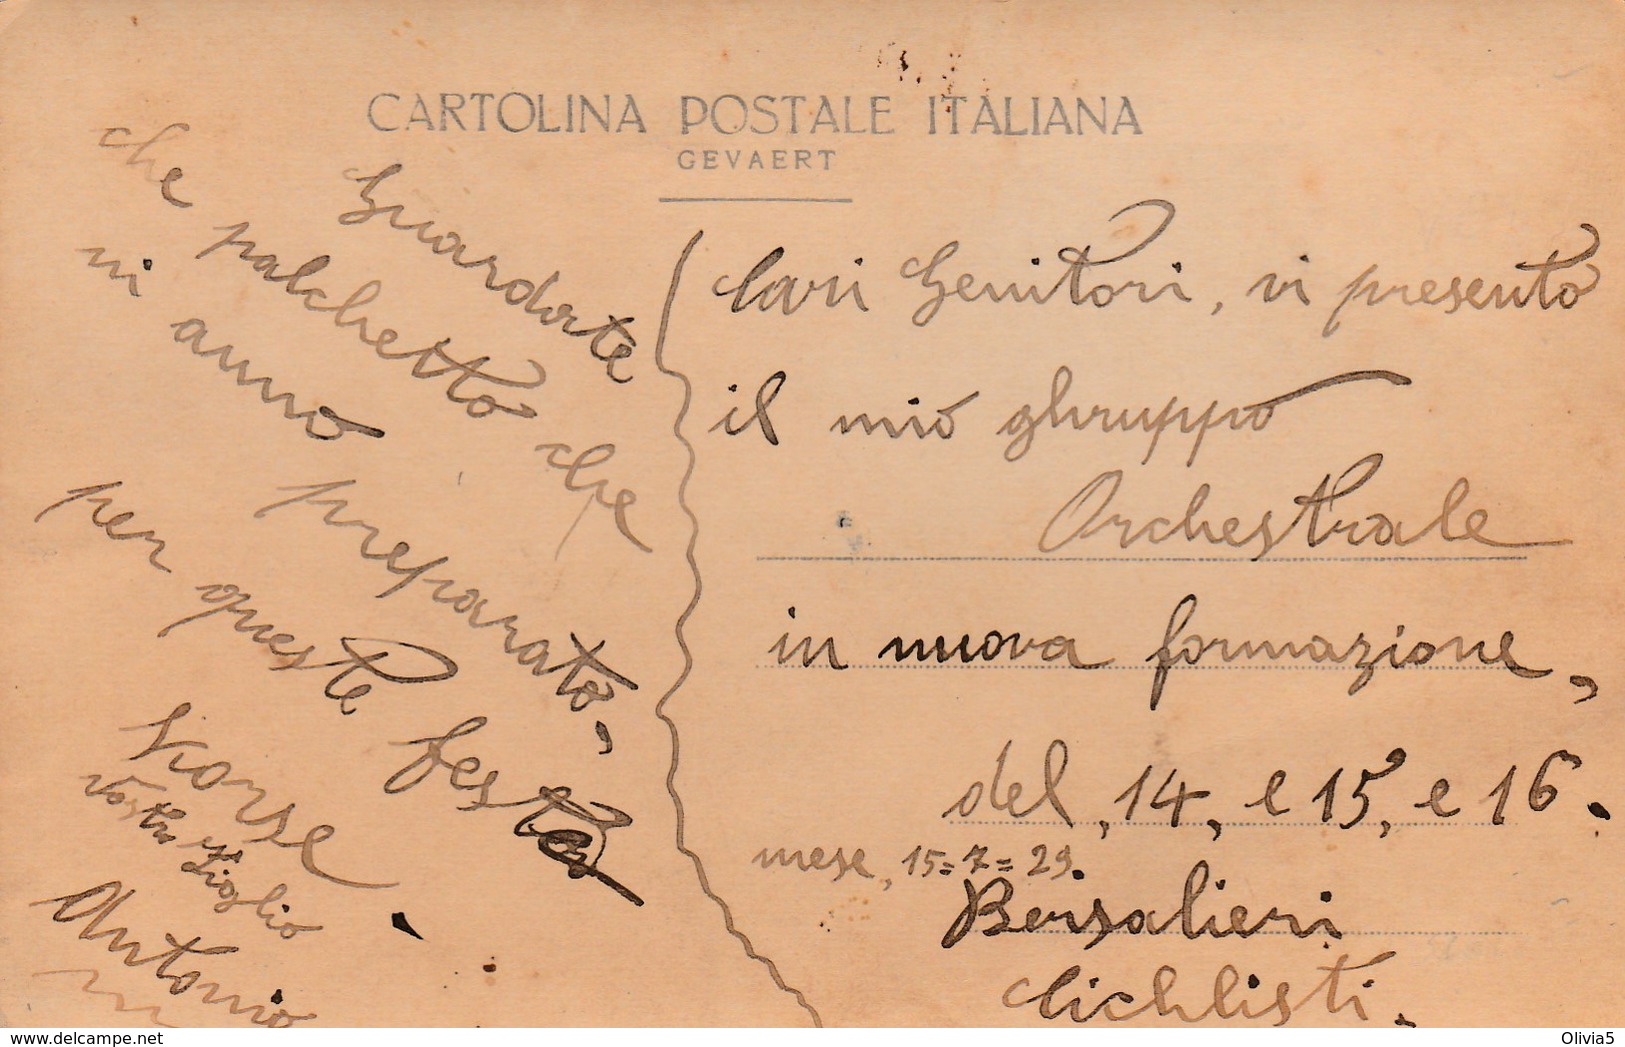 CARTOLINA POSTALE ITALIANA
GEVAERT
Cari Genitori, vi presento
il mio ghruppo
Orchestrale
in nuova formazione,
del, 14, e 15, e 16.
mese, 15=7=29.
Bersalieri
Cichlisti.
Guardate
che palchetto che
vi anno preparato,
per queste feste
Vostro Figlio
Antonio
delcampe.net
Olivia5